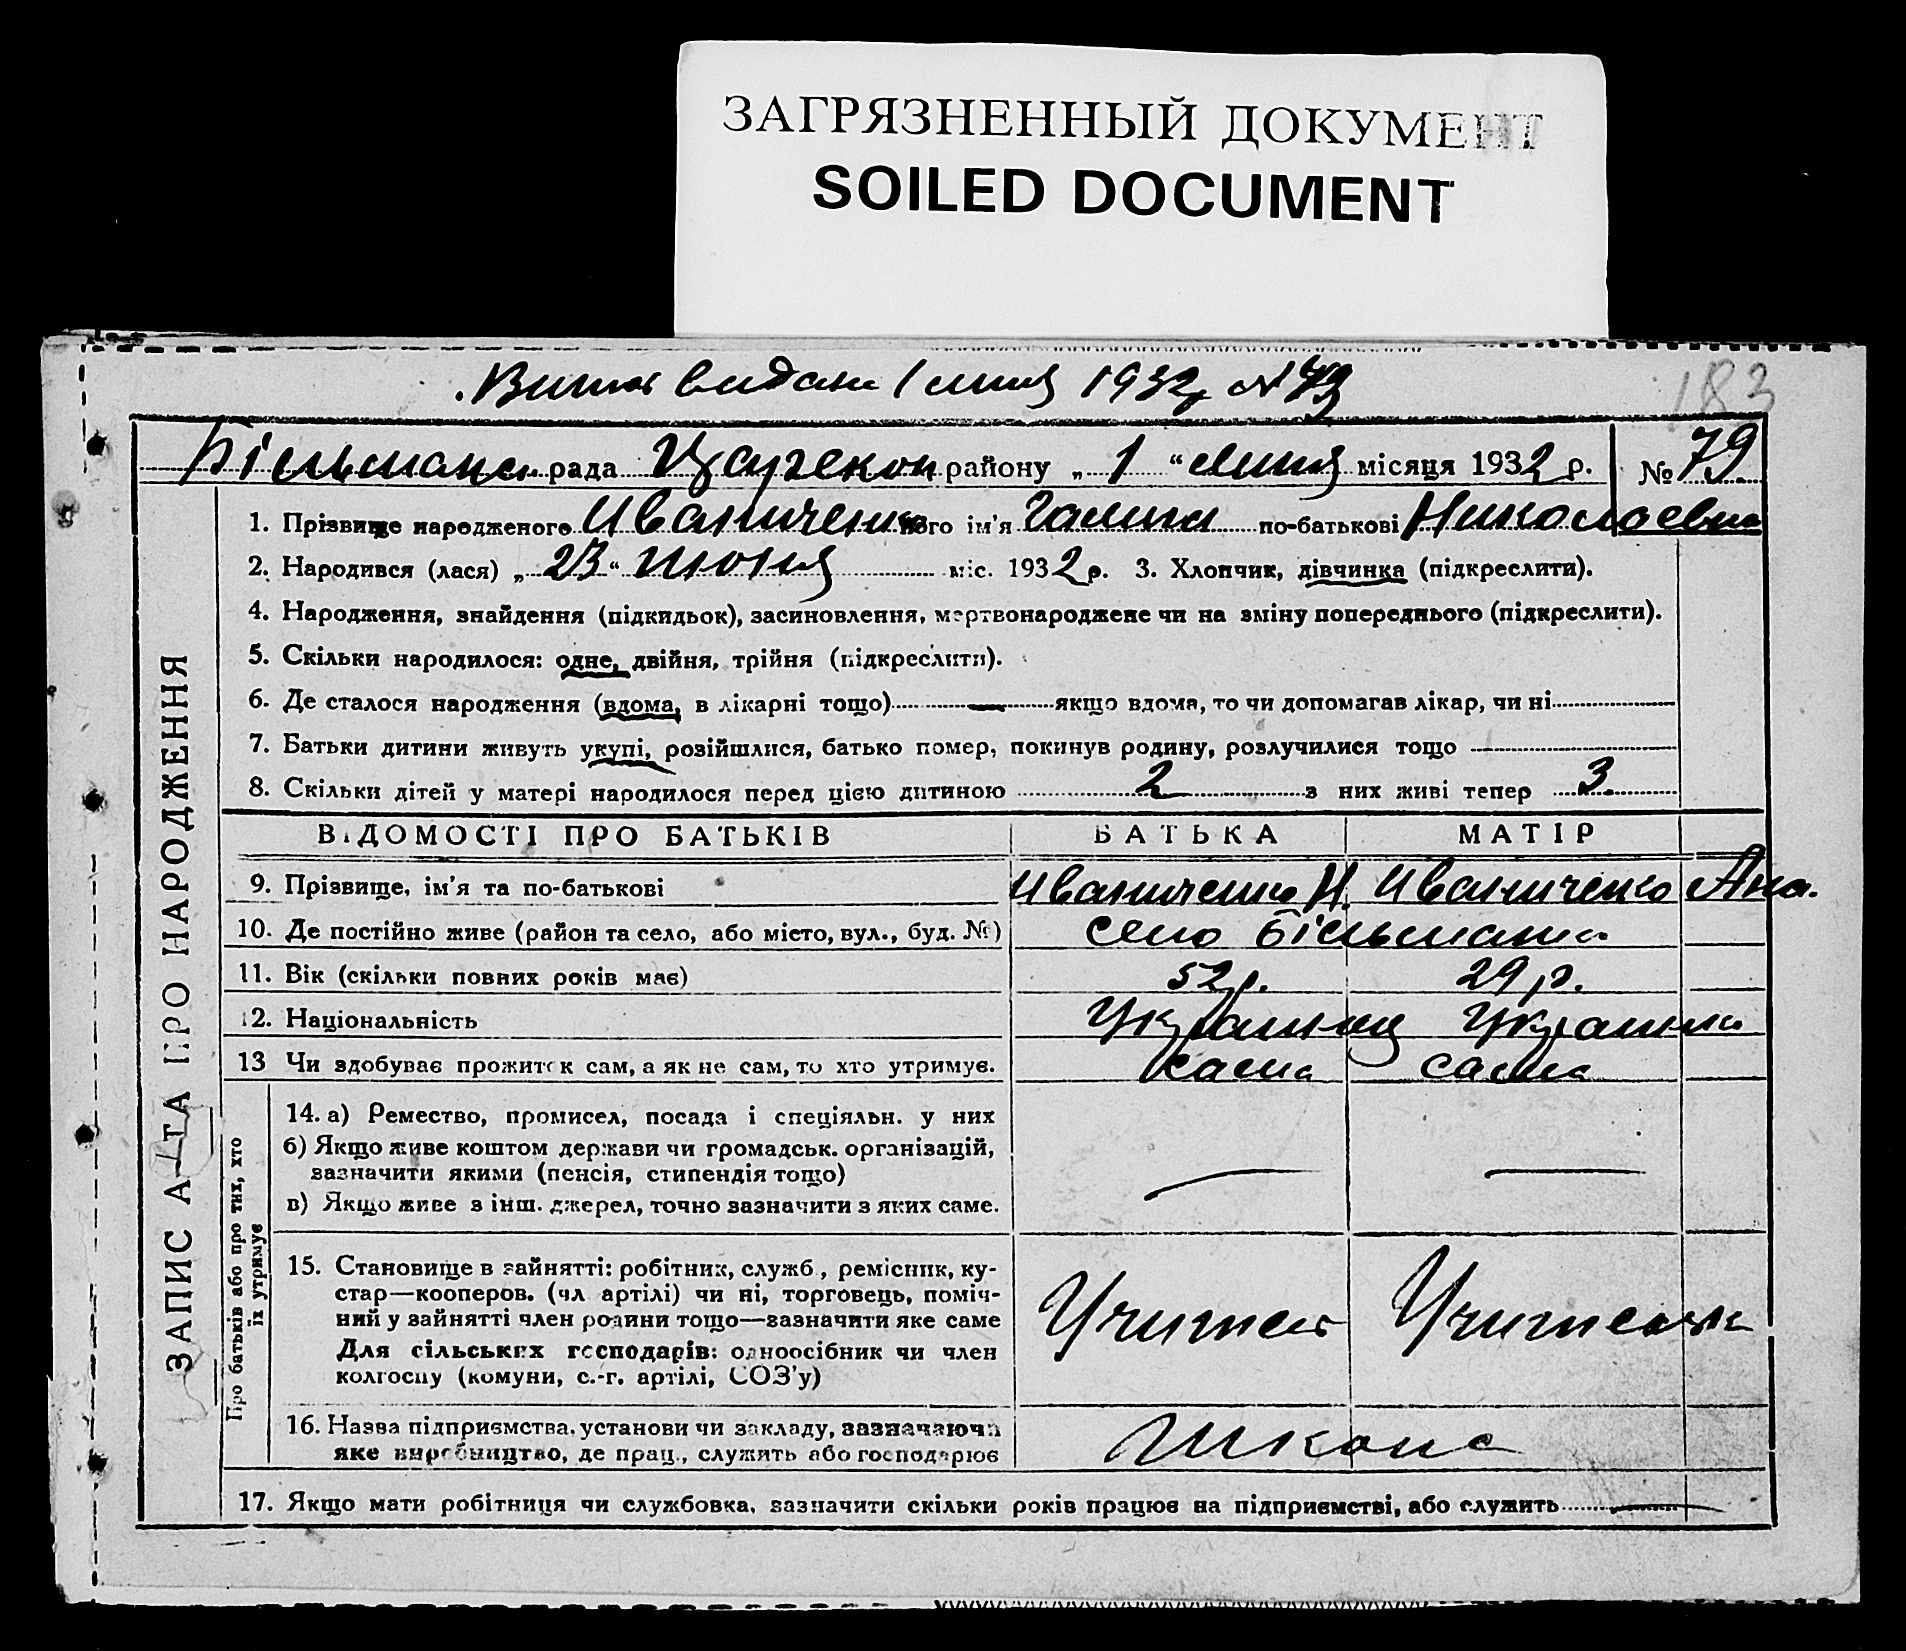 ЗАГРЯЗНЕННЫЙ ДОКУМЕНТ
SOILED DOCUMENT
183
1932р №79
рада району „ 1 “ місяця 1932 р. № 79
1. Прізвище народженого Иваниченко його ім’я Галина по-батькові Николаевна
2. Народився (лася) „ 23 “ июня міс. 1932 р. 3. Хлопчик, дівчинка (підкреслити).
4. Народження, знайдення (підкидьок), засиновлення, мертвонароджене чи на зміну попереднього (підкреслити).
5. Скільки народилося: одне, двійня, трійня (підкреслити).
6. Де сталося народження (вдома, в лікарні тощо) якщо вдома, то чи допомагав лікар, чи ні
7. Батьки дитини живуть укупі, розійшлися, батько помер, покинув родину, розлучилися тощо
8. Скільки дітей у матері народилося перед цією дитиною 2 з них живі тепер 3.
ВІДОМОСТІ ПРО БАТЬКІВ БАТЬКА МАТІР
9. Прізвище, ім’я та по-батькові Иваниченко Н. Иваниченко Ана.
10. Де постійно живе (район та село, або місто, вул., буд. №) село
11. Вік (скільки повних років має) 52 р. 29 р.
12. Національність Украинец Украинка
13 Чи здобуває прожиток сам, а як не сам, то хто утримує. сама
14. а) Ремество, промисел, посада і спеціяльн. у них
б) Якщо живе коштом держави чи громадськ. організацій,
зазначити якими (пенсія, стипендія тощо)
в) Якщо живе з інш. джерел, точно зазначити з яких саме.
15. Становище в зайнятті: робітник, служб., ремісник, ку-
стар—кооперов. (чл артілі) чи ні, торговець, поміч-
ний у зайнятті член родини тощо—зазначити яке саме
Для сільських господарів: одноосібник чи член
колгоспу (комуни, с.-г. артілі, СОЗ’у)
Учитель Учителька
16. Назва підприємства, установи чи закладу, зазначаючи
яке виробництво, де прац., служить або господарює
Школа
17. Якщо мати робітниця чи службовка, зазначити скільки років працює на підприємстві, або служить
ЗАПИС АКТА ПРО НАРОДЖЕННЯ
Про батьків або про тих, хто
їх утримує